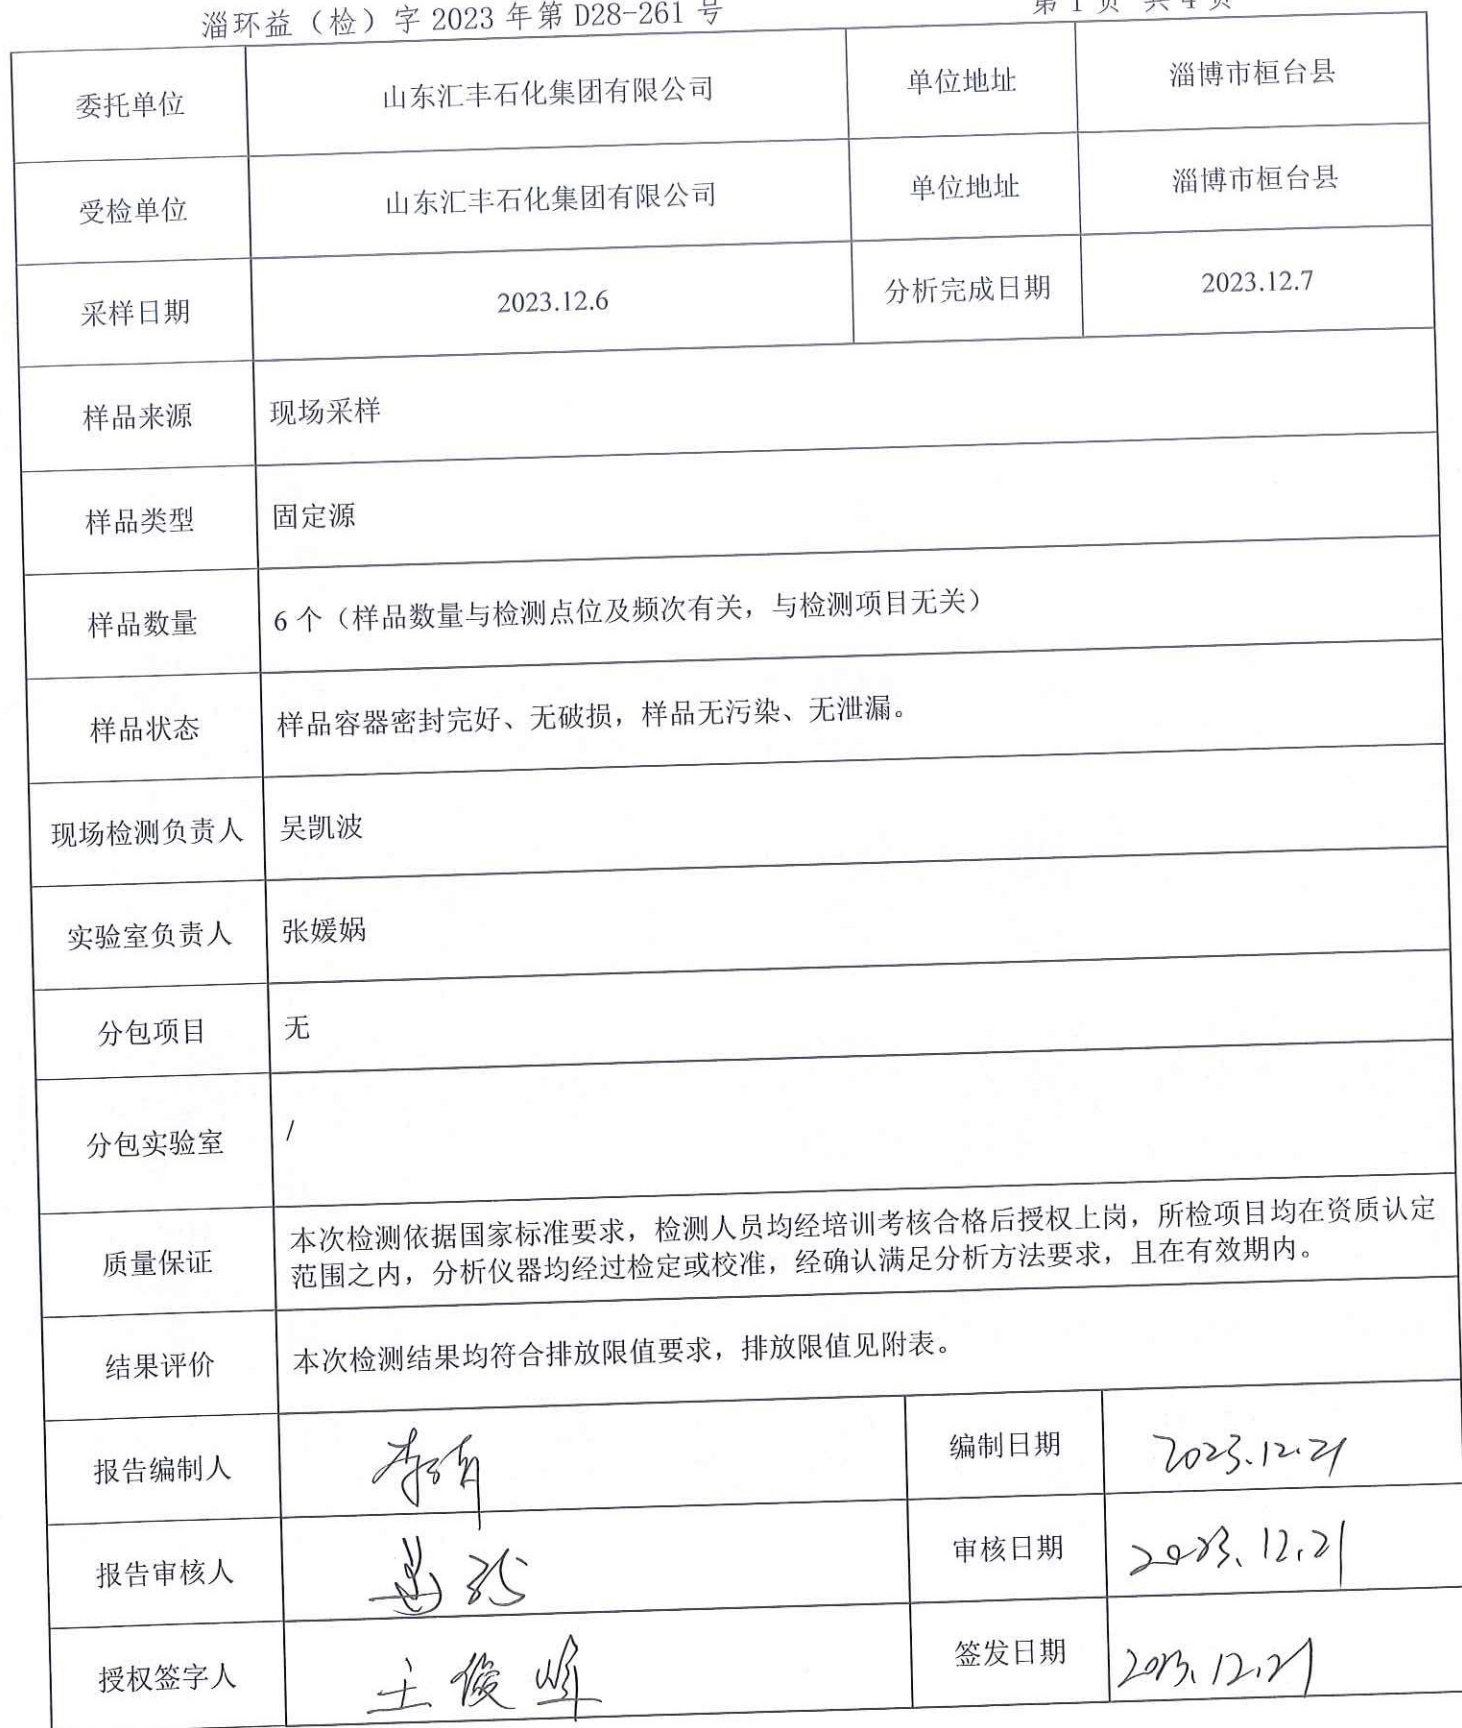 淄环益（检）字 2023 年第 D28-261 号 第 1 页 共 4 页
委托单位 山东汇丰石化集团有限公司 单位地址 淄博市桓台县
受检单位 山东汇丰石化集团有限公司 单位地址 淄博市桓台县
采样日期 2023.12.6 分析完成日期 2023.12.7
样品来源 现场采样
样品类型 固定源
样品数量 6 个（样品数量与检测点位及频次有关，与检测项目无关）
样品状态 样品容器密封完好、无破损，样品无污染、无泄漏。
现场检测负责人 吴凯波
实验室负责人 张媛娲
分包项目 无
分包实验室 /
质量保证 本次检测依据国家标准要求，检测人员均经培训考核合格后授权上岗，所检项目均在资质认定
范围之内，分析仪器均经过检定或校准，经确认满足分析方法要求，且在有效期内。
结果评价 本次检测结果均符合排放限值要求，排放限值见附表。
报告编制人 编制日期 2023.12.21
报告审核人 审核日期 2023.12.21
授权签字人 王俊峰 签发日期 2023.12.21